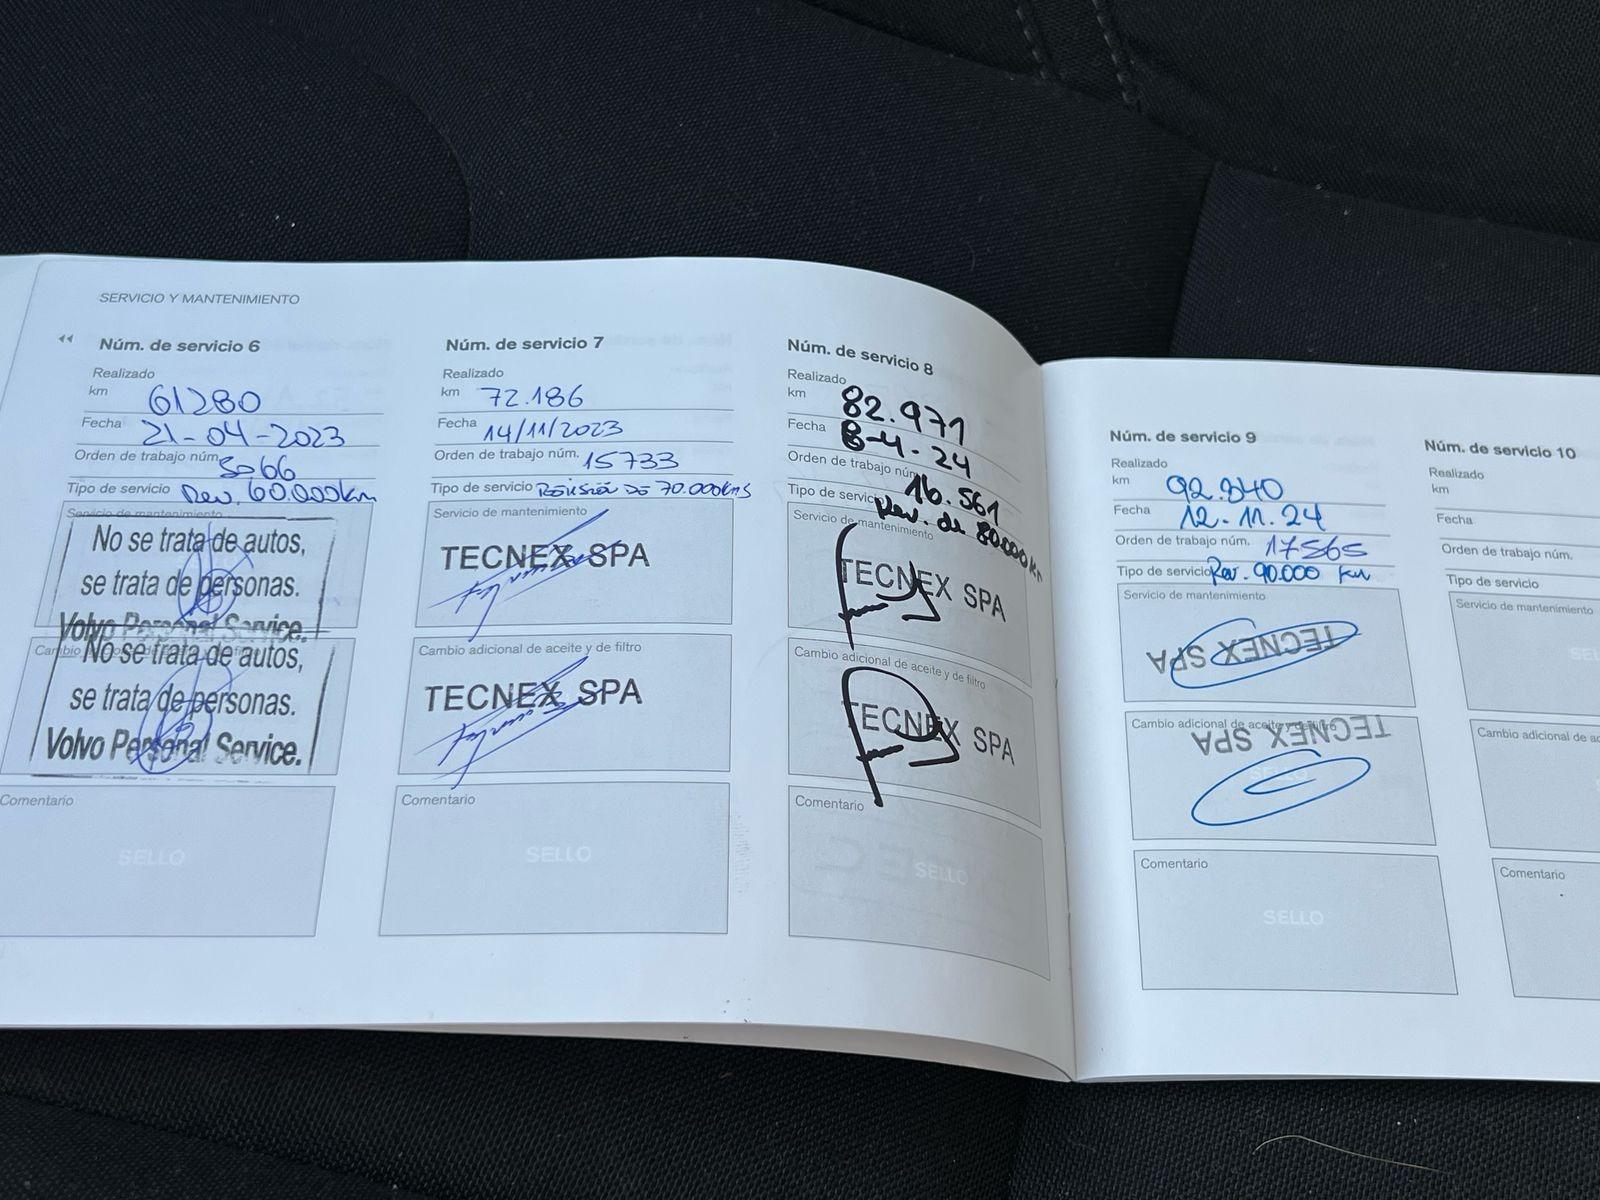 SERVICIO Y MANTENIMIENTO
Núm. de servicio 6
Realizado
km 61280
Fecha 21-04-2023
Orden de trabajo núm.
Tipo de servicio Rev. 60.000km
Servicio de mantenimiento
No se trata de autos,
se trata de personas.
Volvo Personal Service.
No se trata de autos,
se trata de personas.
Volvo Personal Service.
Comentario
SELLO
Núm. de servicio 7
Realizado
km 72.186
Fecha 14/11/2023
Orden de trabajo núm. 15733
Tipo de servicio Revisión de 70.000kms
Servicio de mantenimiento
TECNEX SPA
Cambio adicional de aceite y de filtro
TECNEX SPA
Comentario
SELLO
Núm. de servicio 8
Realizado
km 82.971
Fecha 8-4-24
Orden de trabajo núm. 16.561
Tipo de servicio Rev. de 80.000km
Servicio de mantenimiento
TECNEX SPA
Cambio adicional de aceite y de filtro
TECNEX SPA
Comentario
SELLO
Núm. de servicio 9
Realizado
km 92.340
Fecha 12.11.24
Orden de trabajo núm. 17565
Tipo de servicio Rev. 90.000 km
Servicio de mantenimiento
TECNEX SPA
Cambio adicional de aceite y de filtro
TECNEX SPA
SELLO
Comentario
SELLO
Núm. de servicio 10
Realizado
km
Fecha
Orden de trabajo núm.
Tipo de servicio
Servicio de mantenimiento
Cambio adicional de
Comentario